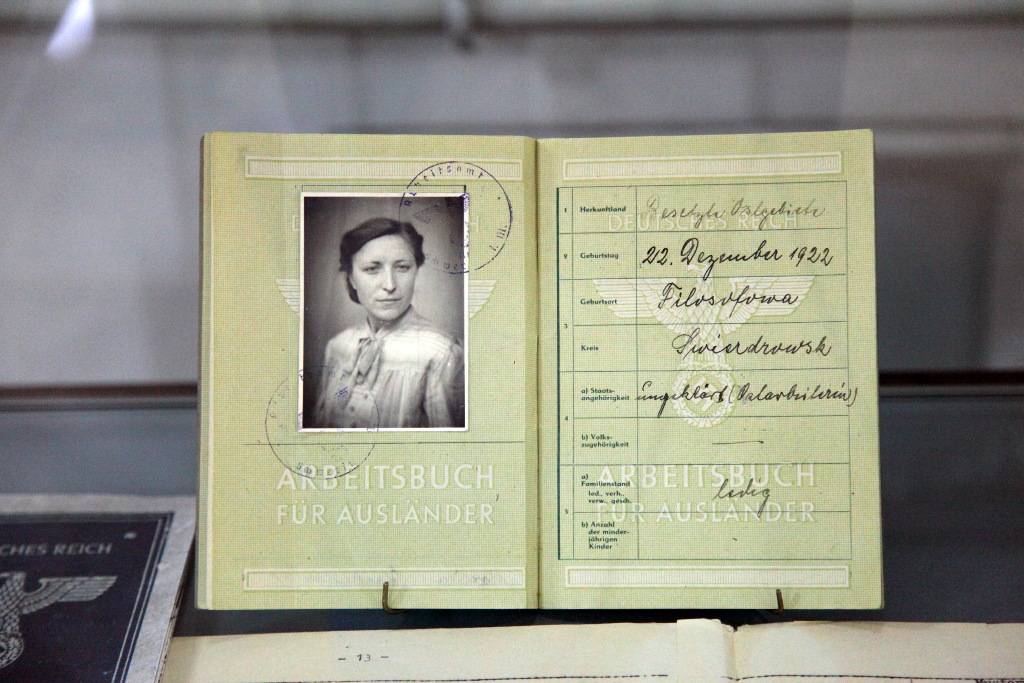 Arbeitsamt
DEUTSCHES REICH
ARBEITSBUCH
FÜR AUSLÄNDER
1 Herkunftland Besetzte Ostgebiete
DEUTSCHES REICH
2 Geburtstag 22. Dezember 1922
3 Geburtsort Filosofowa
Kreis Swierdrowsk
4 a) Staats-
angehörigkeit ungeklärt (Ostarbeiterin)
b) Volks-
zugehörigkeit —
5 a)
Familienstand
led., verh.,
verw., gesch. ledig
b) Anzahl
der minder-
jährigen
Kinder
ARBEITSBUCH
FÜR AUSLÄNDER
SCHES REICH
- 13 -